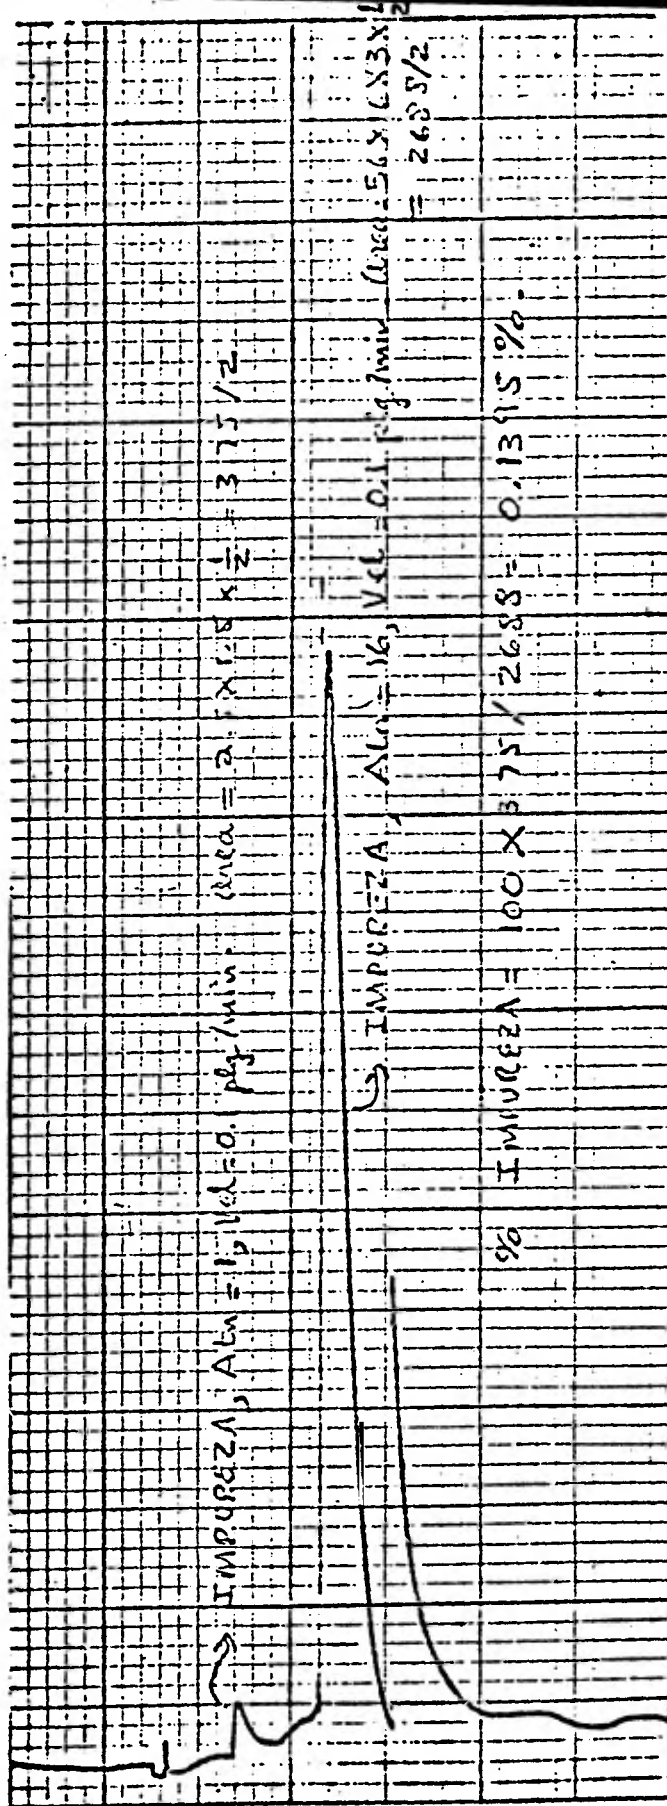 IMPUREZA, Atn = 1, Vel = 0.1 plg/min. Area = 2.5 X 1.5 x 1/2 = 3.75/2
IMPUREZA, Atn = 16, Vel = 0.1 plg/min Area = 56X16X3X 1/2
= 2688/2
% IMPUREZA = 100 X 3.75 / 2688 = 0.1395 %.